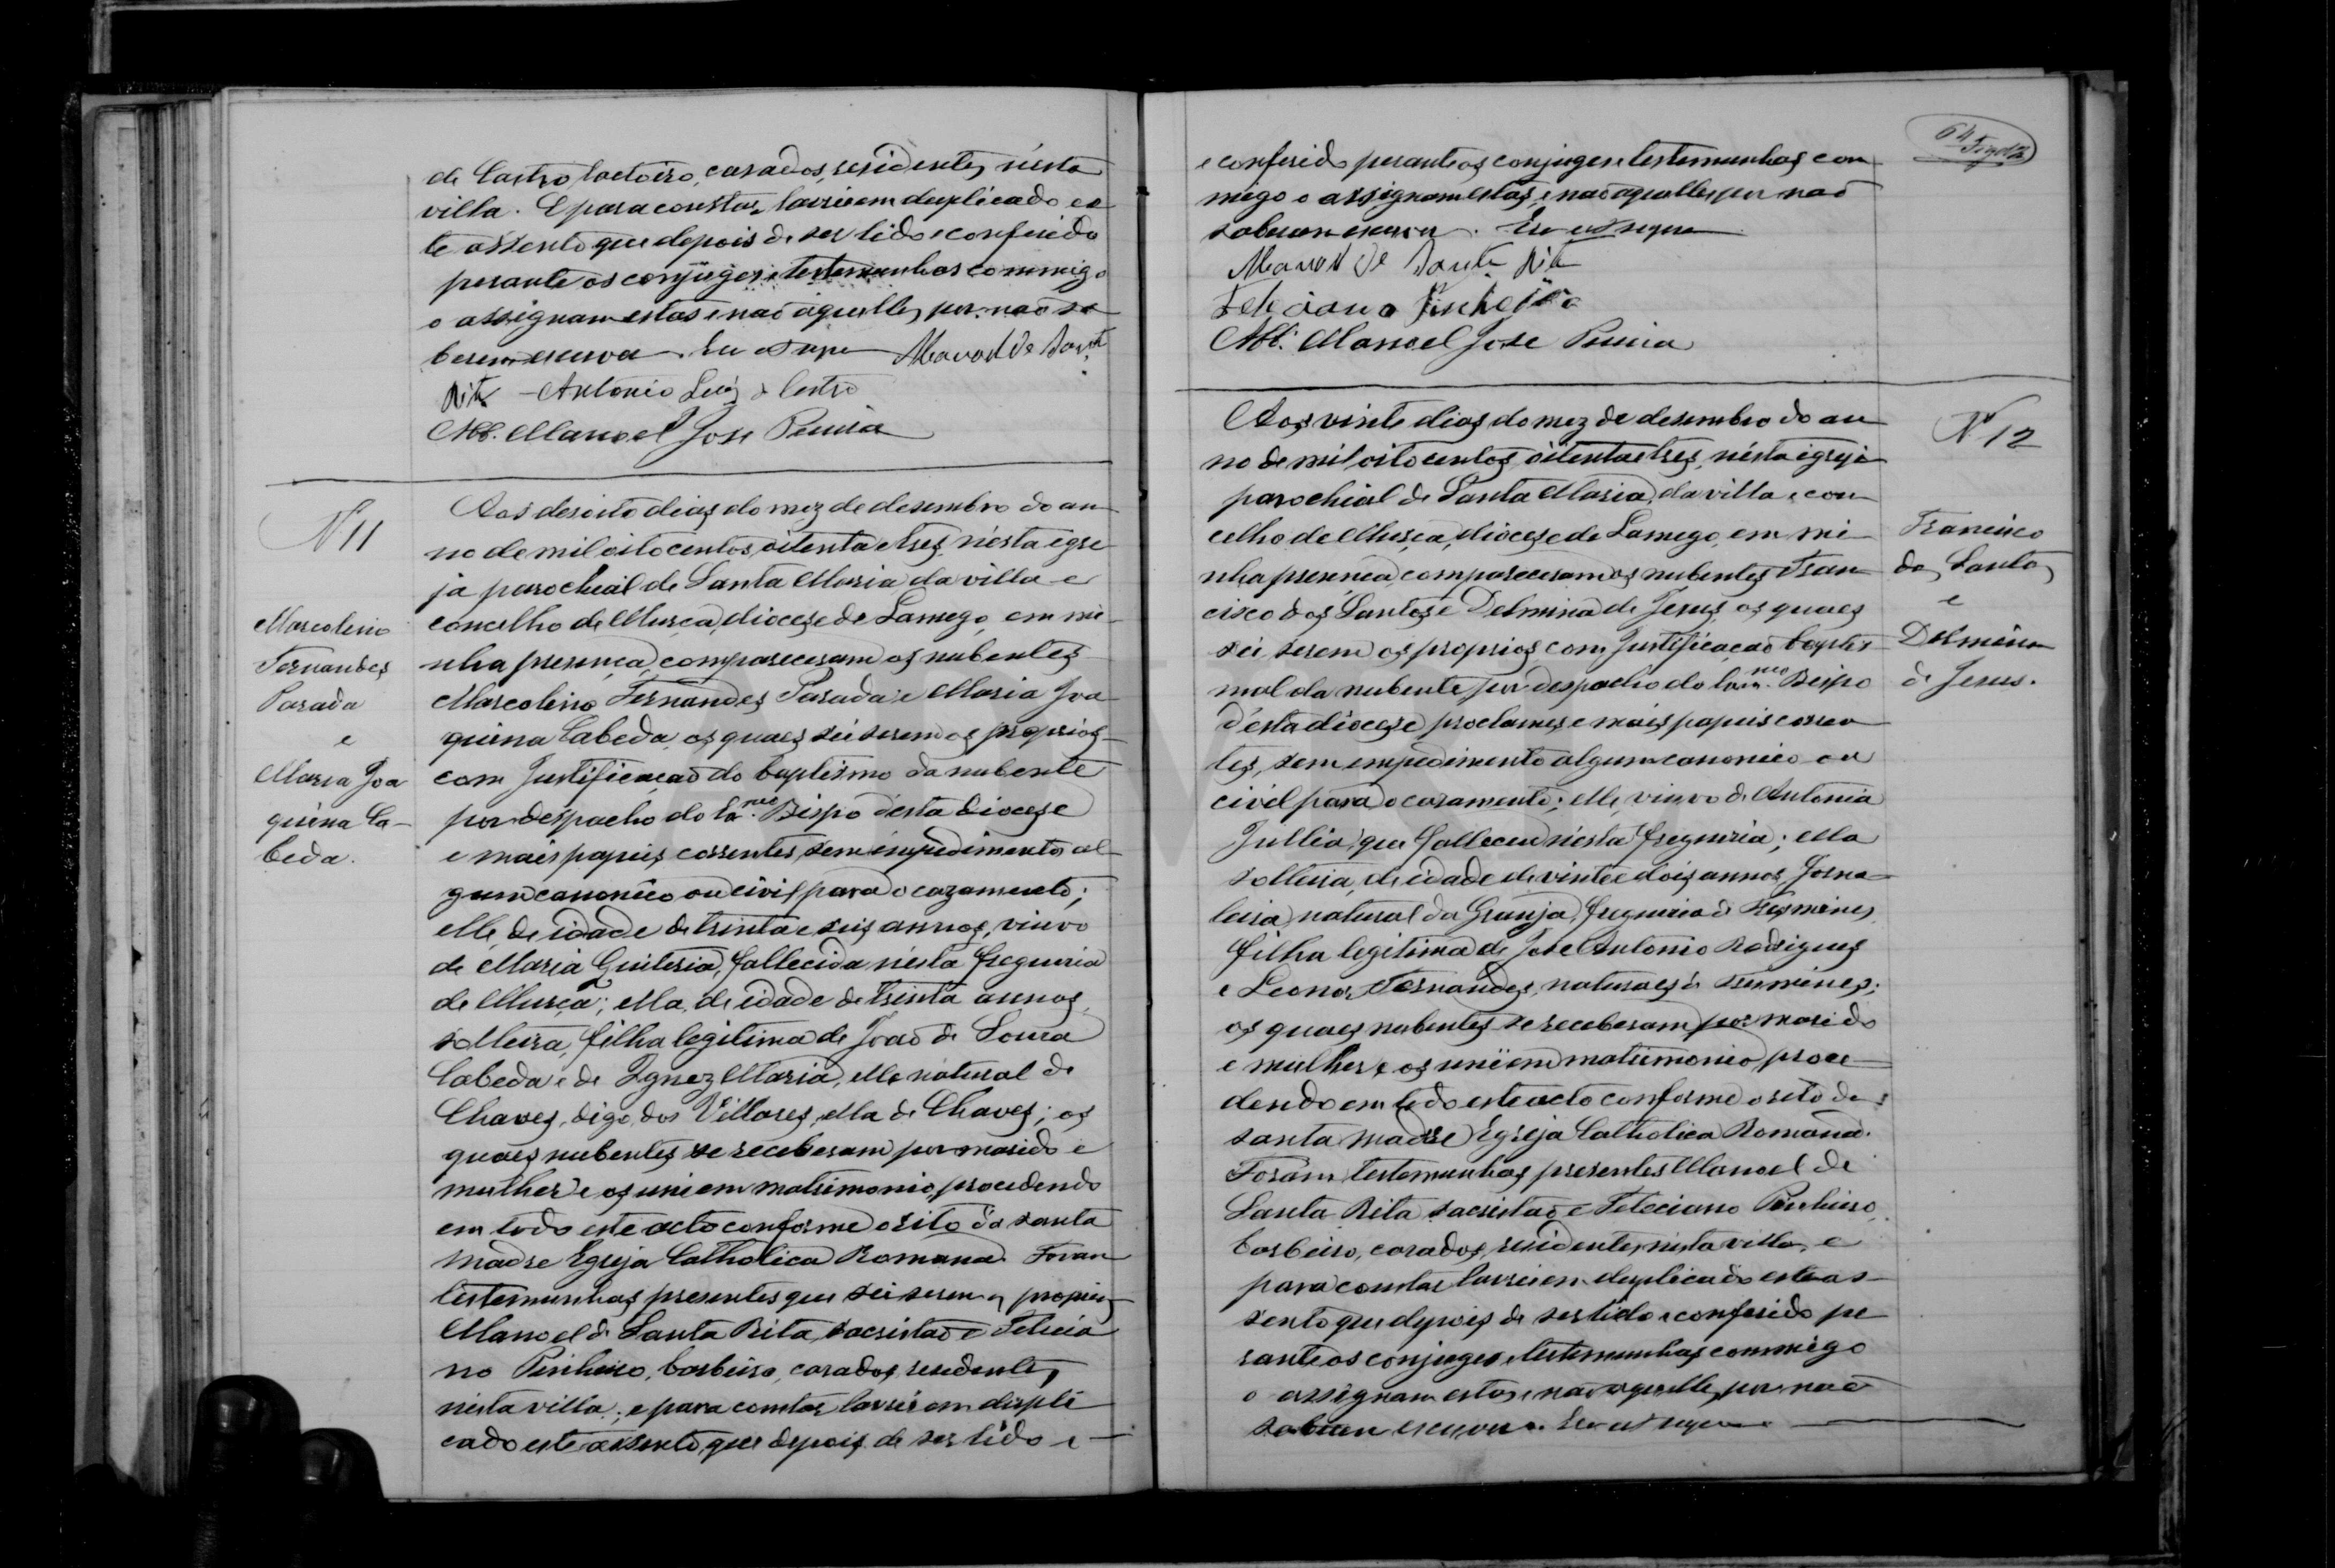 de Castro Cartoiro, casados, residentes n'esta
villa. E para constar lavrei em duplicado es
te assento que depois de ser lido e conferido
perante os conjuges e testemunhas commigo
o assignam estas e não aquelles, por não sa
berem escrever. Era ut supra Manoel de Santa
Rita – Antonio Luiz de Castro
Abb. Manoel Jose Pereira
N 11
Marcolino
Fernandes
Parada
e
Maria Joa
quina Ca-
beda.
Aos desoito dias do mez de desembro do an
no de mil oitocentos, oitenta e tres, n'esta egre
ja parochial de Santa Maria da villa e
concelho de Murça, diocese de Lamego, em mi
nha presença, compareceram os nubentes
Marcolino Fernandes Parada e Maria Joa
quina Cabeda, os quaes sei serem os proprios
com Justificação do baptismo da nubente
por despacho do Exmo. Bispo d'esta diocese
e mais papeis correntes, sem impedimento al
gum canonico ou civil para o cazamento;
elle, de idade de trinta e seis annos, viuvo
de Maria Quiteria, fallecida n'esta freguesia
de Murça; ella, de idade de trinta annos,
solteira, filha legitima de João de Sousa
Cabeda e de Ignez Maria, elle natural de
Chaves, digo, dos Villares, ella de Chaves; os
quaes nubentes se receberam por marido e
mulher e os uni em matrimonio, procedendo
em todo este acto conforme o rito da santa
Madre Egreja Catholica Romana. Foram
testemunhas presentes que sei serem os proprios
Manoel de Santa Rita, sacristão e Felicia
no Pinheiro, barbeiro, casados, residentes
n'esta villa; e para constar lavrei em dupli
cado este assento, que depois de ser lido e
64
e conferido perante os conjuges e testemunhas com
migo o assignam estas, e não aquelles por não
saberem escrever. Era ut supra
Manoel de Santa Rita
Feleciano Pinheiro
Abb. Manoel Jose Pereira
N 12
Francisco
dos Santos
e
Delmina
de Jesus.
Aos vinte dias do mez de desembro do an
no de mil oitocentos, oitenta e tres, n'esta egreja
parochial de Santa Maria, da villa e con
celho de Murça, diocese de Lamego, em mi
nha presença, compareceram os nubentes Fran
cisco dos Santos e Delmina de Jesus, os quaes
sei serem os proprios, com Justificação baptis
mal da nubente por despacho do Exmo. Bispo
d'esta diocese proclames e mais papeis corren
tes, sem impedimento algum canonico ou
civil para o casamento; elle, viuvo de Antonia
Jullia, que falleceu n'esta freguesia; ella
solteira, de idade de vinte e dois annos, Jorna
leira, natural da Granja, freguesia de
filha legitima de Jose Antonio Rodrigues
e Leonor Fernandes, naturaes de
os quaes nubentes se receberam por marido
e mulher e os uni em matrimonio, proce
dendo em todo este acto conforme o rito da
santa Madre Egreja Catholica Romana.
Foram testemunhas presentes Manoel de
Santa Rita, sacristão e Feleciano Pinheiro,
barbeiro, casados, residentes n'esta villa, e
para constar lavrei em duplicado este as
sento que depois de ser lido e conferido pe
rante os conjuges e testemunhas commigo
o assignam estas, e não aquelles, por não
saberem escrever. Era ut supra